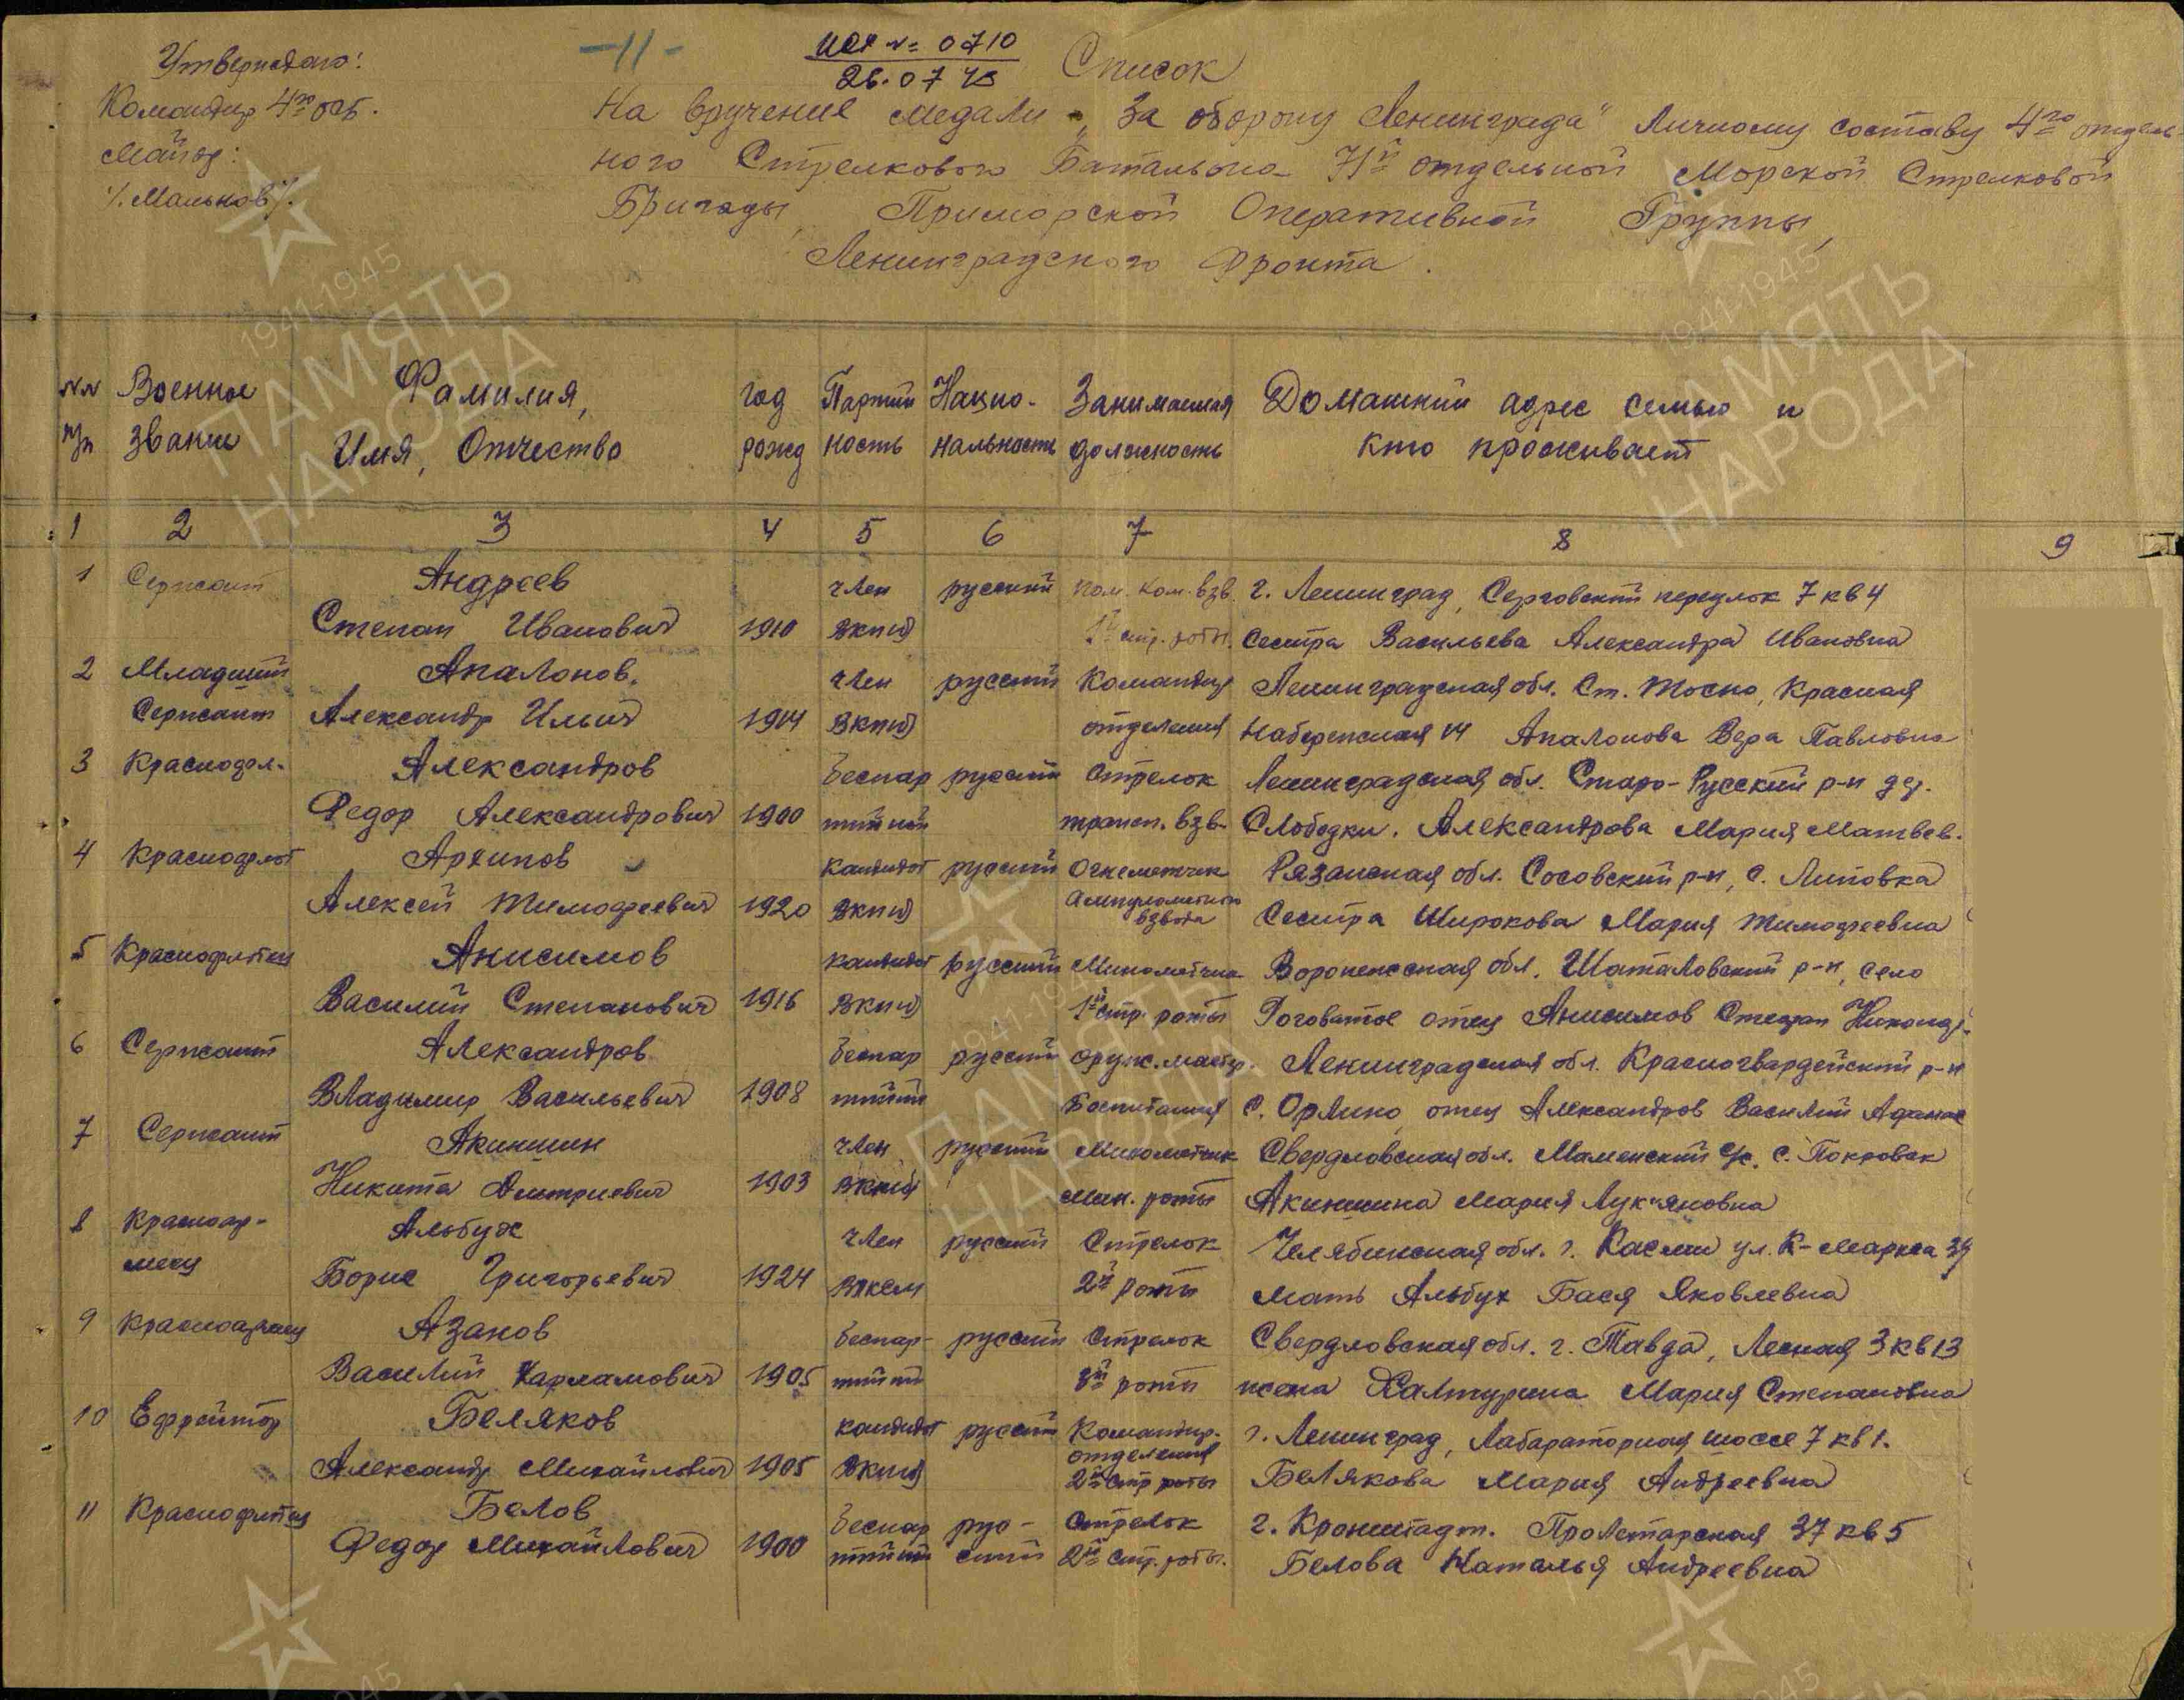 -11-
Исх № 0710
26.07 43
Утверждаю:
Командир 4го осб.
Майор:
/.Мальков/.
Список
На вручение медали "За оборону Ленинграда" Личному составу 4го отдель
ного Стрелкового Батальона 71й отдельной Морской Стрелковой
Бригады, Приморской Оперативной Группы,
Ленинградского Фронта.
№№ Военное Фамилия, год Партий Нацио- Занимаемая Домашний адрес семьи и
п/п звание Имя, Отчество рожд ность нальность должность кто проживает
1 2 3 4 5 6 7 8 9
1 Сержант Андреев член русский пом. ком. взв. г. Ленинград, Серговский переулок 7 кв 4
Степан Иванович 1910 ВКП(б) 1й стр. роты. сестра Васильева Александра Ивановна
2 Младший Апалонов. член русский Командир Ленинградская обл. Ст. Тосно, Красная
Сержант Александр Ильич 1914 ВКП(б) отделения Набережная 14 Апалонова Вера Павловна
3 Краснофл. Александров беспар русский Стрелок Ленинградская обл. Старо-Русский р-н дер.
Федор Александрович 1900 тийный трансп. взв. Слободки. Александрова Мария Матвев.
4 Краснофлот Архипов кандидат русский Огнеметчик Рязанская обл. Сосовский р-н, с. Липовка
Алексей Тимофеевич 1920 ВКП(б) Ампуломётного взвода Сестра Широкова Мария Тимофеевна
5 Краснофлотец Анисимов кандидат русский Минометчик Воронежская обл. Шаталовский р-н, село
Василий Степанович 1916 ВКП(б) 1й стр. роты Роговатое отец Анисимов Степан
6 Сержант Александров беспар русский оруж. мастер. Ленинградская обл. Красногвардейский р-н
Владимир Васильевич 1908 тийный с. Орлино, отец Александров Василий
7 Сержант Акиншин член русский Минометчик Свердловская обл. с. Покровск
Никита Дмитриевич 1903 ВКП(б) мин. роты Акиншина Мария Лук"яновна
8 Красноар- Альбух член русский Стрелок Челябинская обл. г. Касли ул. К-Маркса 39
меец Борис Григорьевич 1924 ВЛКСМ 2й роты мать Альбух Бася Яковлевна
9 Красноармеец Азанов беспар- русский Стрелок Свердловская обл. г. Тавда, Лесная 3 кв 13
Василий Харламович 1905 тийный 3й роты жена Халтурина Мария Степановна
10 Ефрейтор Беляков кандидат русский Командир. г. Ленинград, Лабараторная шоссе 7 кв 1.
Александр Михайлович 1905 ВКП(б) отделения 2й стр роты Белякова Мария Андреевна
11 Краснофлотец Белов беспар рус- стрелок г. Кронштадт. Пролетарская 37 кв 5
Федор Михайлович 1900 тийный ский 2й стр. роты. Белова Наталья Андреевна
1941-1945
ПАМЯТЬ
НАРОДА